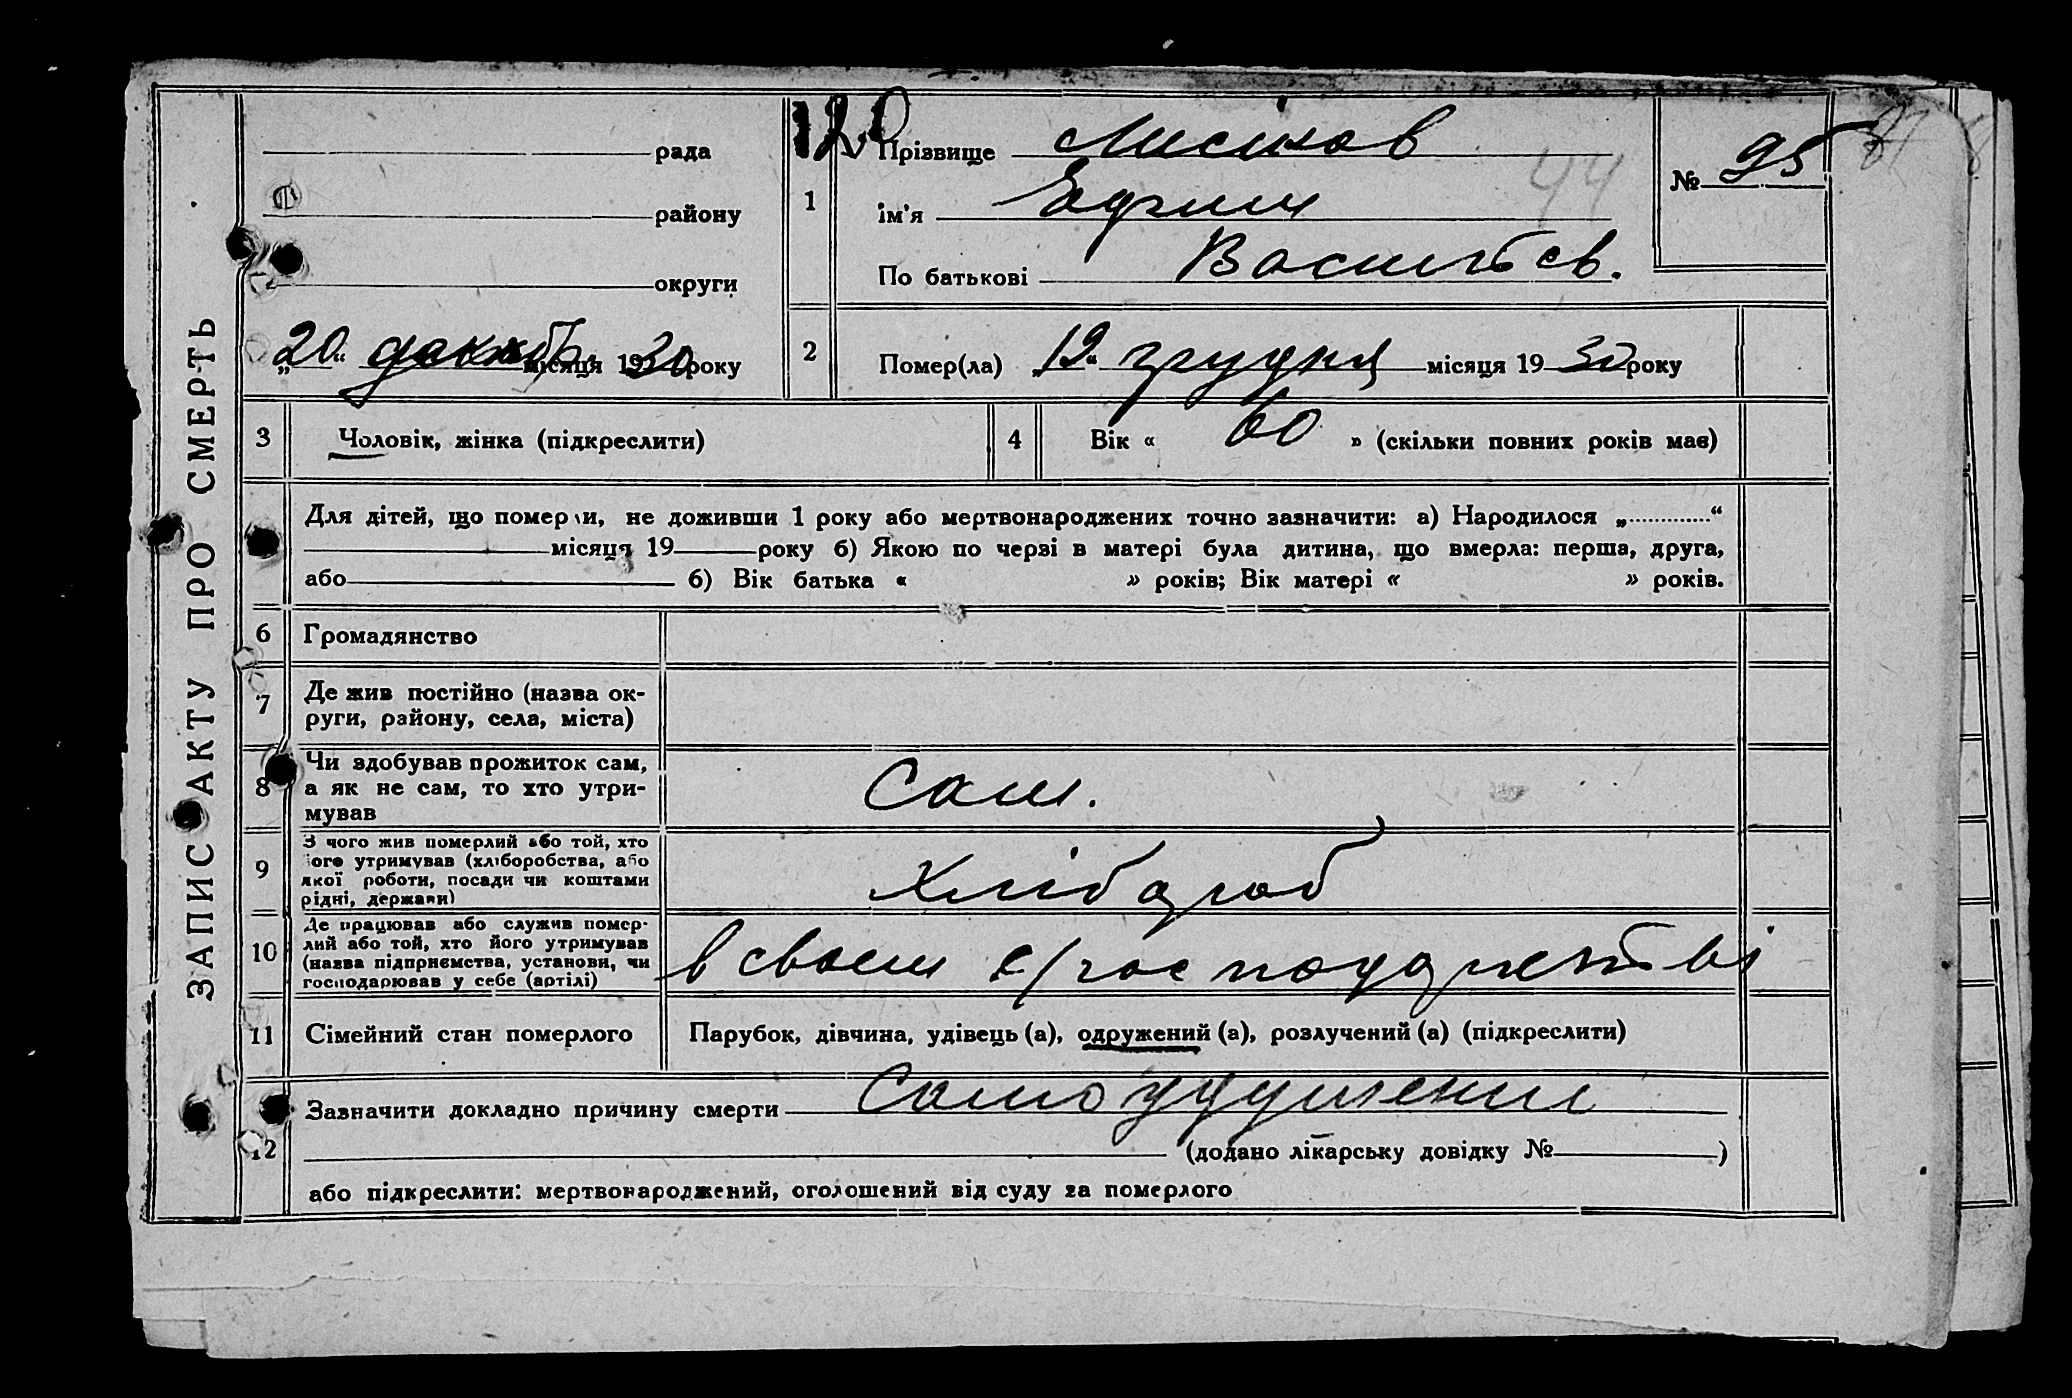 ЗАПИС АКТУ ПРО СМЕРТЬ
рада
району
округи
„20“ декабр. місяця 1930 року
120
1 Прізвище
ім'я Ефим
По батькові Васильев.
№ 95
44
2 Помер(ла) „12“ грудня місяця 1930 року
3 Чоловік, жінка (підкреслити)
4 Вік « 60 » (скільки повних років має)
Для дітей, що померли, не доживши 1 року або мертвонароджених точно зазначити: а) Народилося „.............“
місяця 19 року б) Якою по черзі в матері була дитина, що вмерла: перша, друга,
або б) Вік батька « » років; Вік матері « » років.
6 Громадянство
7 Де жив постійно (назва ок-
руги, району, села, міста)
8 Чи здобував прожиток сам,
а як не сам, то хто утри-
мував
Сам.
9 З чого жив померлий або той, хто
його утримував (хліборобства, або
якої роботи, посади чи коштами
рідні, держави)
Хлібороб
10 Де працював або служив помер-
лий або той, хто його утримував
(назва підприємства, установи, чи
господарював у себе (артілі)
в своем с/господарстві
11 Сімейний стан померлого
Парубок, дівчина, удівець (а), одружений (а), розлучений (а) (підкреслити)
12 Зазначити докладно причину смерти Самоудушение
(додано лікарську довідку № )
або підкреслити: мертвонароджений, оголошений від суду за померлого